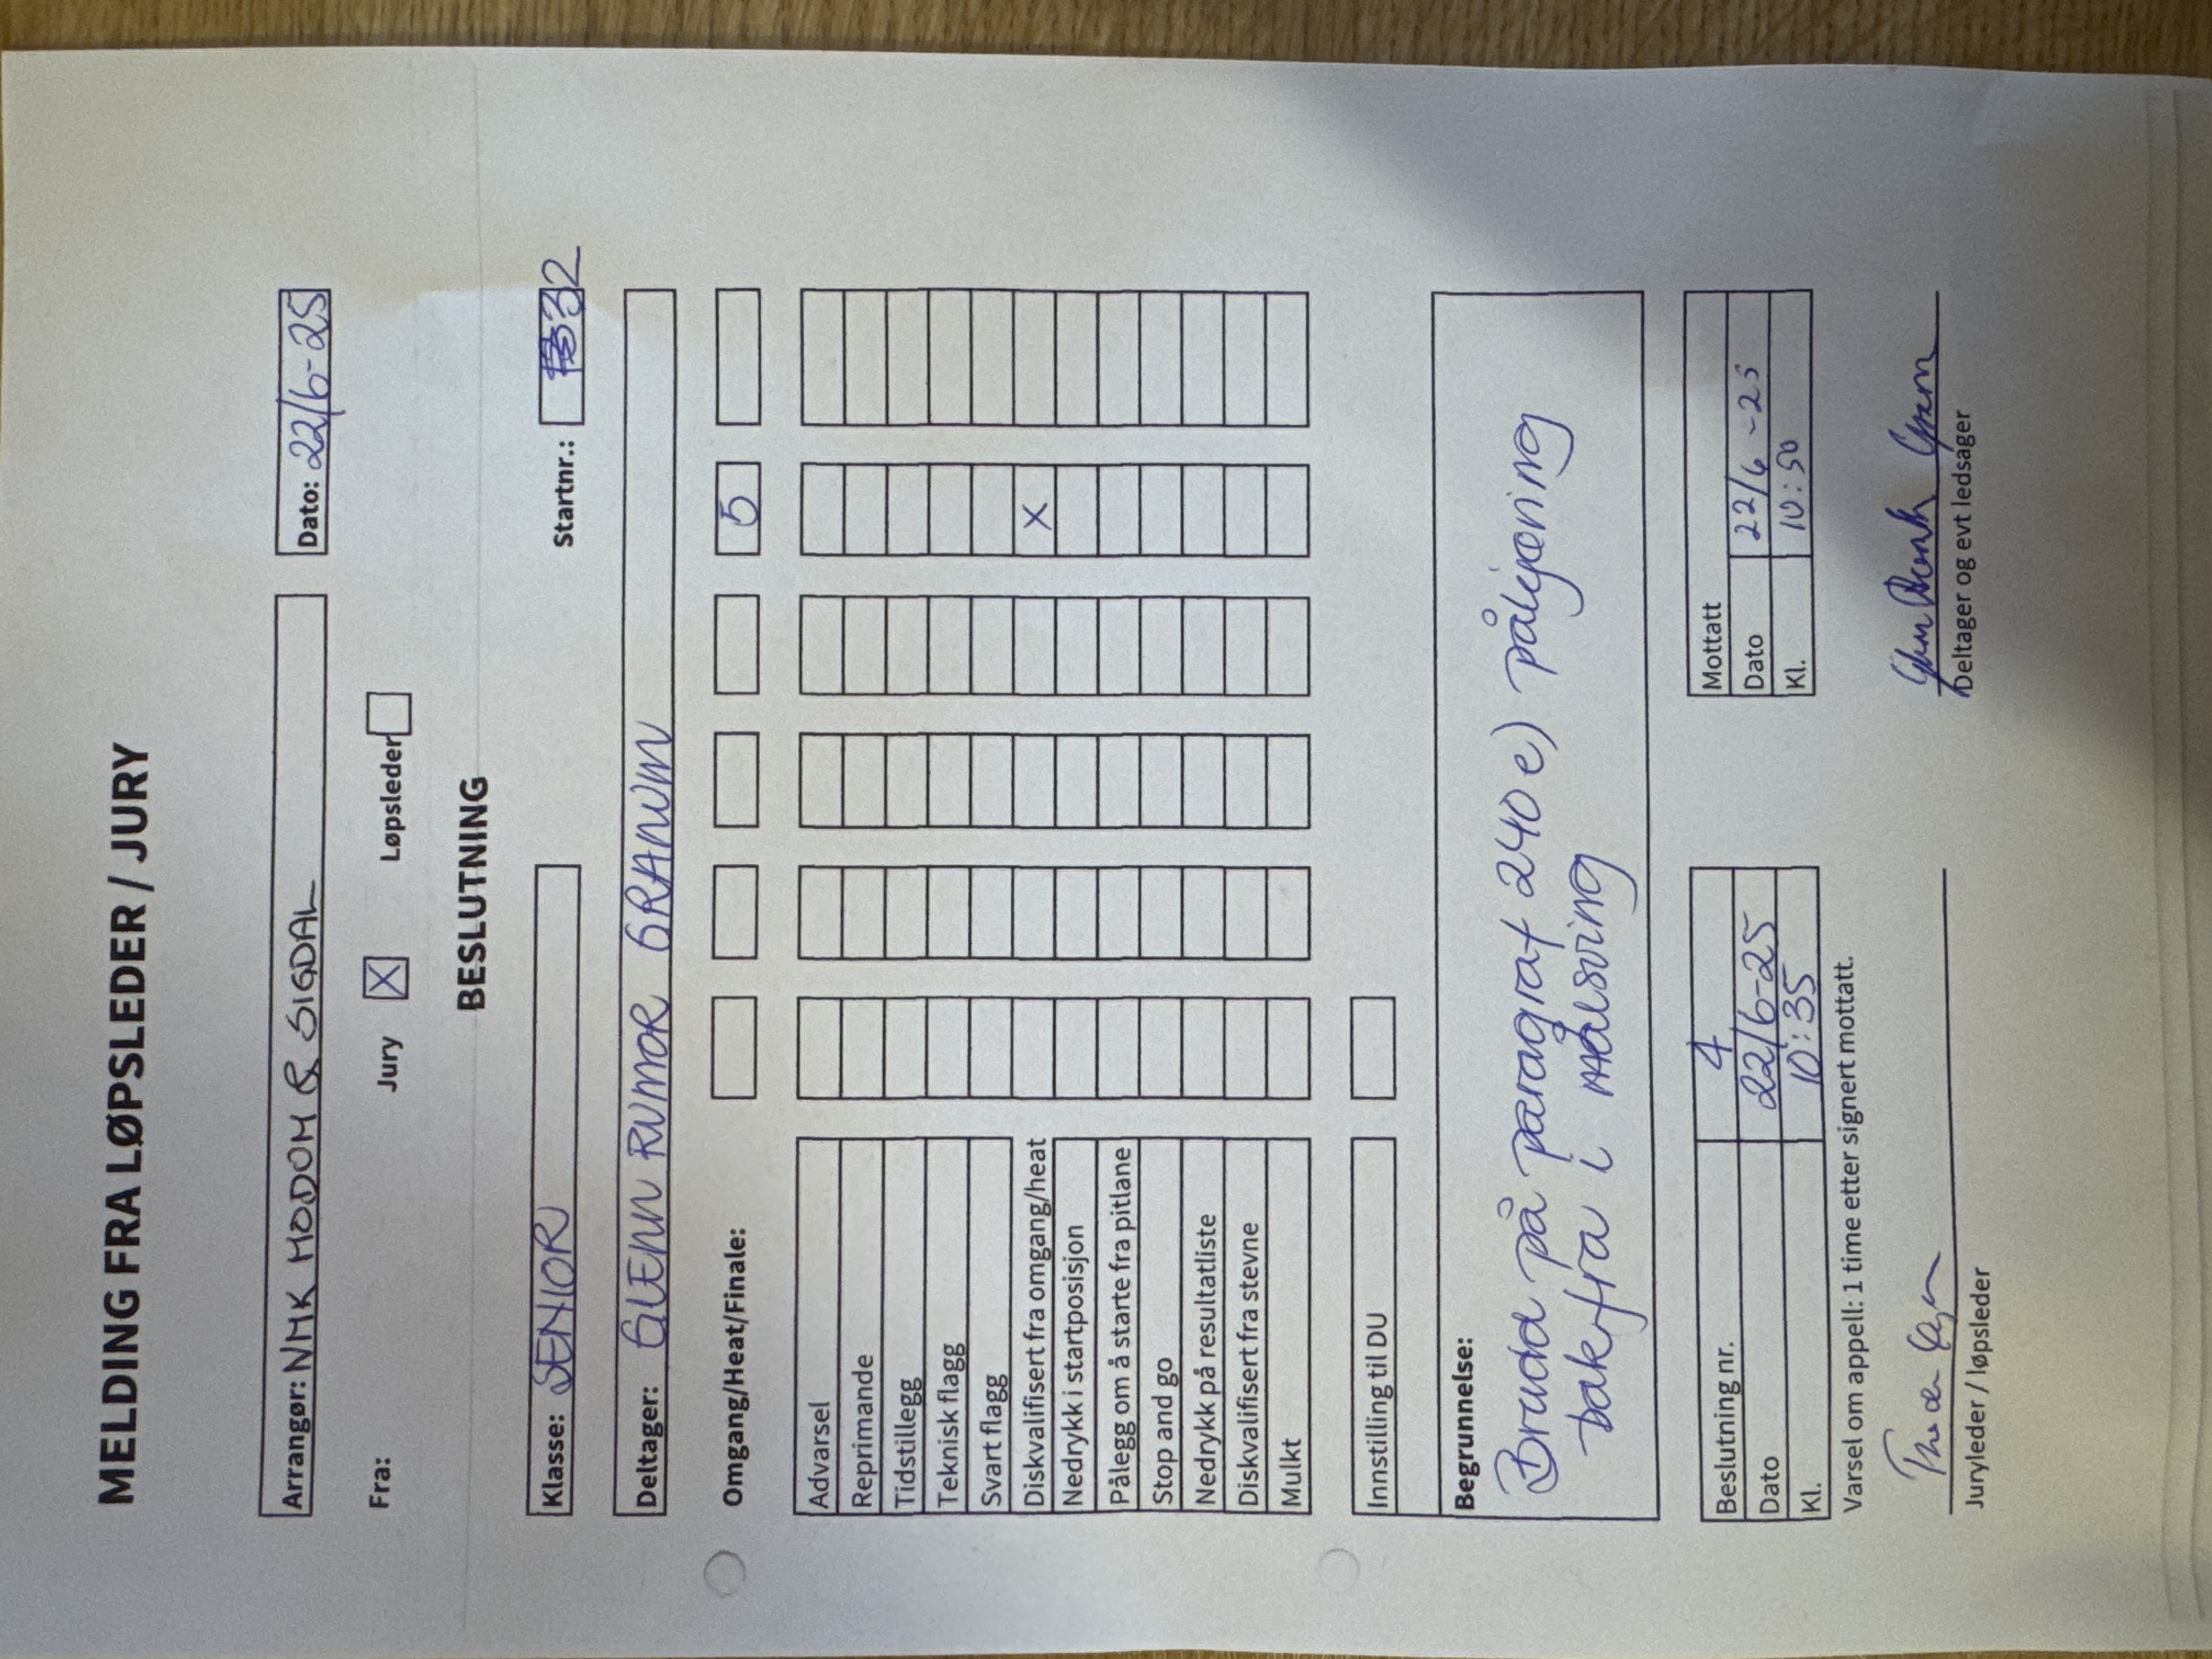 MELDING FRA LØPSLEDER / JURY
Arrangør: NMK MODUM & SIGDAL Dato: 22/6-25
Fra: Jury X Løpsleder
BESLUTNING
Klasse: SENIOR Startnr.: 32
Deltager: GLENN RUMAR GRANUM
Omgang/Heat/Finale: 5
Advarsel
Reprimande
Tidstillegg
Teknisk flagg
Svart flagg
Diskvalifisert fra omgang/heat X
Nedrykk i startposisjon
Pålegg om å starte fra pitlane
Stop and go
Nedrykk på resultatliste
Diskvalifisert fra stevne
Mulkt
Innstilling til DU
Begrunnelse:
Brudd på paragraf 240 e) påkjøring
bakfra i målsving
Beslutning nr. 4 Mottatt
Dato 22/6-25 Dato 22/6-25
Kl. 10:35 Kl. 10:50
Varsel om appell: 1 time etter signert mottatt.
Juryleder / løpsleder Deltager og evt ledsager